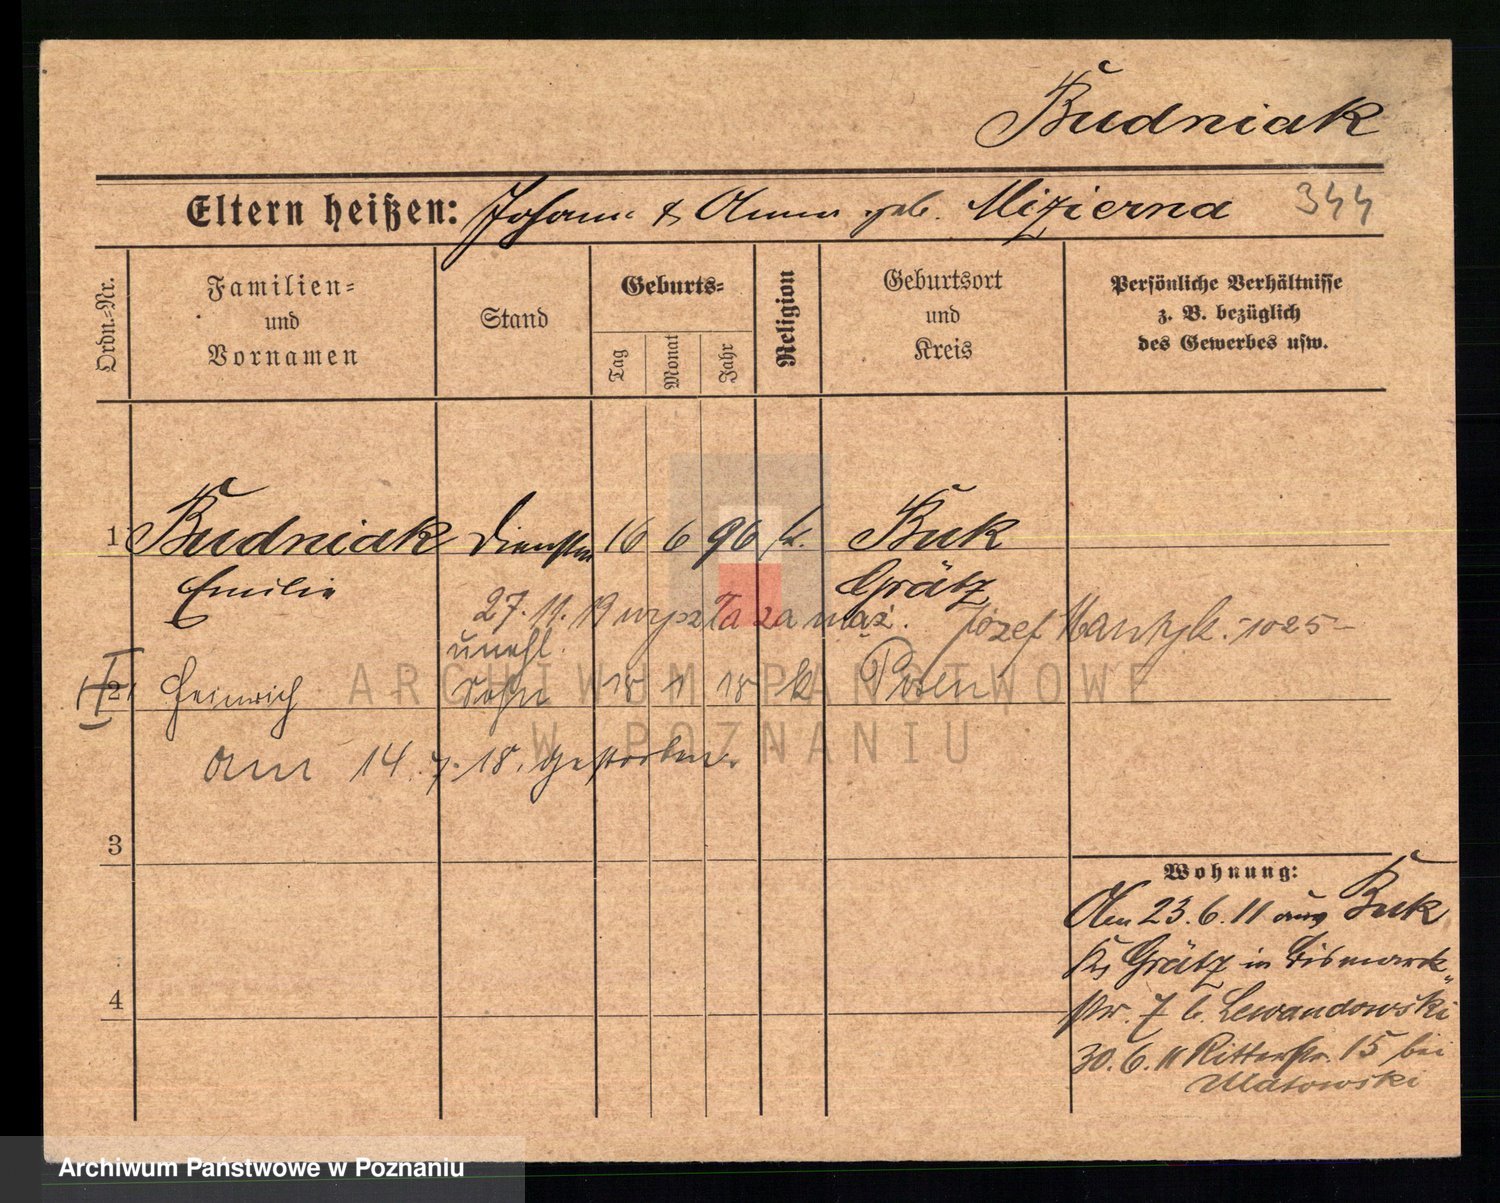 Budniak
Eltern heißen: Johann & Anna geb. Mizierna 344
Ordn.=Nr.
Familien=
und
Vornamen
Stand
Geburts=
Tag
Monat
Jahr
Religion
Geburtsort
und
Kreis
Persönliche Verhältnisse
z. B. bezüglich
des Gewerbes usw.
1 Budniak 16 6 96 k. Buk
Emilie Grätz
27.11.19 wyszła za mąż. Józef 1025
unehl.
2 Heinrich Sohn 18 1 18 k Posen
am 14.7.18. gestorben.
3
4
Wohnung:
Am 23.6.11 aus Buk
Ks Grätz in Bismarck
str. 7 b. Lewandowski
30.6.11 Ritterstr. 15 bei
Matowski
ARCHIWUM PAŃSTWOWE
W POZNANIU
Archiwum Państwowe w Poznaniu